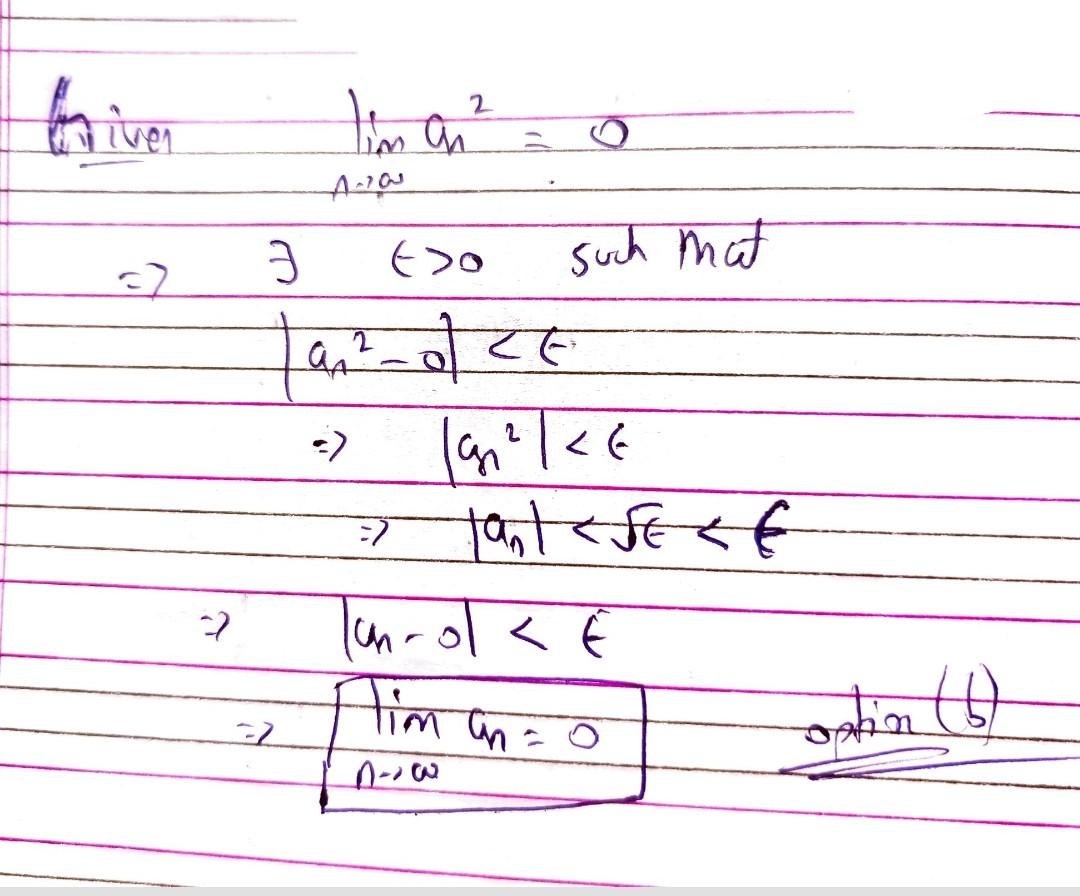 Given lim aₙ² = 0
n→∞
⇒ ∃ ϵ>0 such that
|aₙ² - 0| < ϵ
⇒ |aₙ²| < ϵ
⇒ |aₙ| < √ϵ < ϵ
⇒ |aₙ - 0| < ϵ
⇒ lim aₙ = 0 option (b)
n→∞